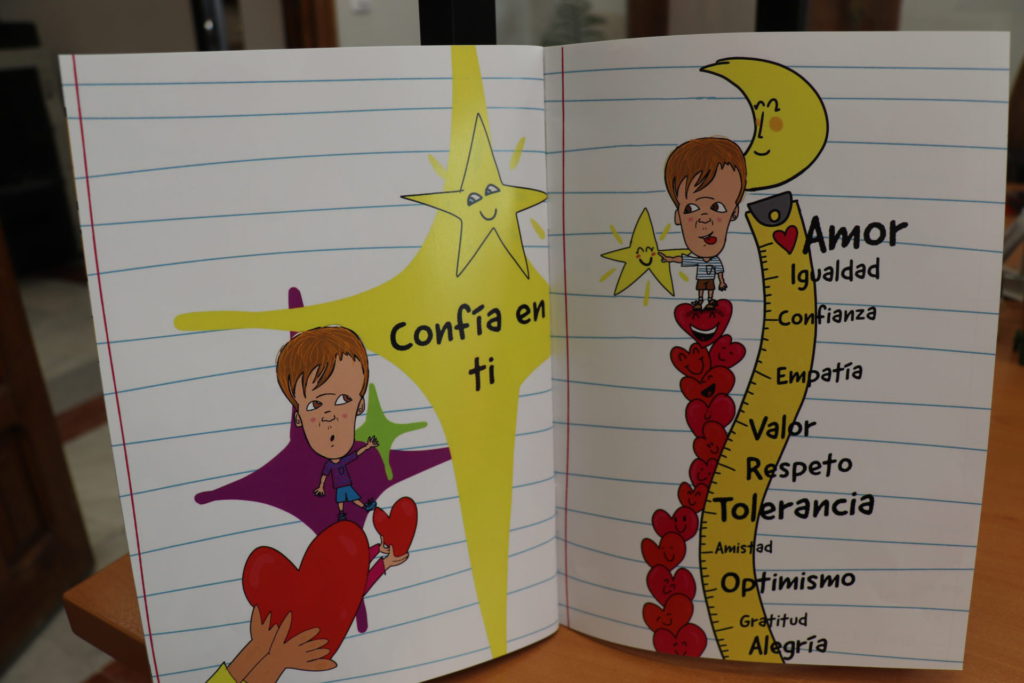 Confía en
ti
Amor
Igualdad
Confianza
Empatía
Valor
Respeto
Tolerancia
Amistad
Optimismo
Gratitud
Alegría